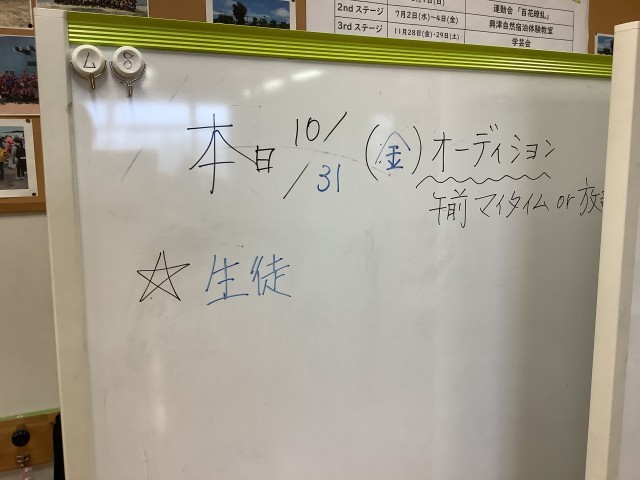 2ndステージ 7月2日(水)~4日(金) 興津自然宿泊体験教室
3rdステージ 11月28日(金)・29日(土) 学芸会
運動会「百花繚乱」
本日 10/31 (金) オーディション
午前 マイタイム or 放
☆ 生徒